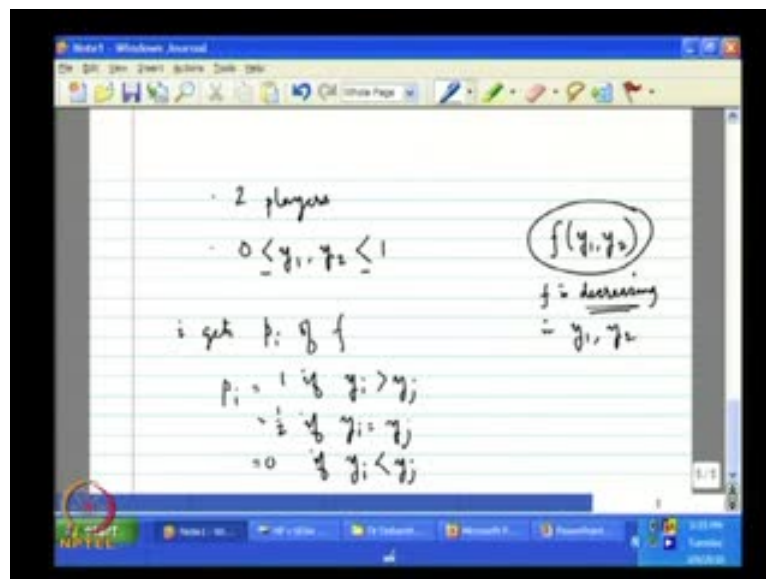 Note1 - Windows Journal
File Edit View Insert Actions Tools Help
Whole Page
· 2 players
· 0 ≤ y₁, y₂ ≤ 1
f(y₁, y₂)
f is decreasing
in y₁, y₂
i gets pᵢ of f
pᵢ = 1 if yᵢ > yⱼ
= ½ if yᵢ = yⱼ
= 0 if yᵢ < yⱼ
1/1
NPTEL
start
Tuesday